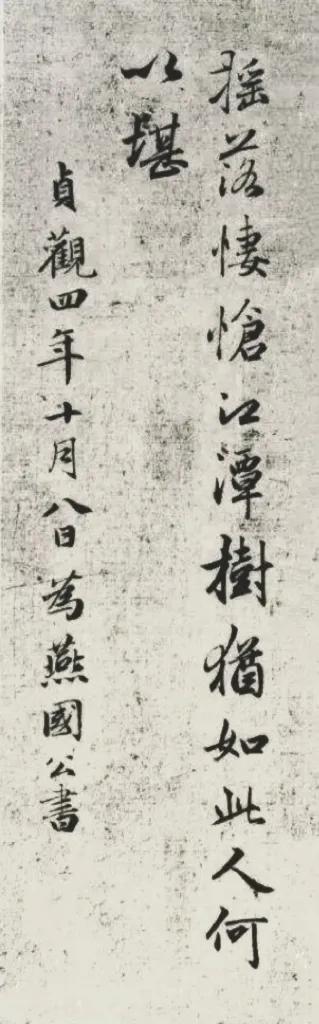 摇落悽愴江潭樹猶如此人何
以堪
貞觀四年十月八日為燕國公書